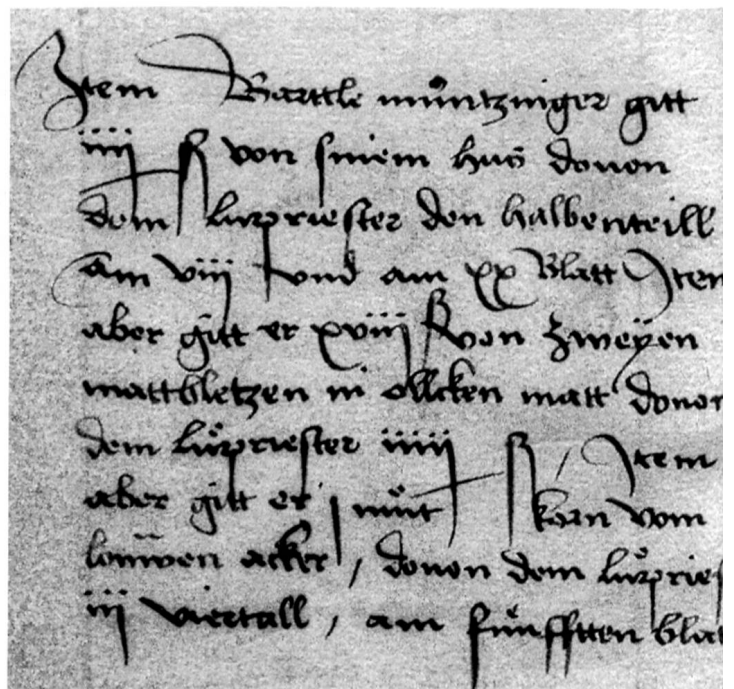 Item Barttle müntzinger gitt
iiij ß von sinem hus donon
dem lüpriester den halbenteill
am viij vnd am xx blatt Item
aber gitt er xviij ß von zweyen
mattbletzen in ollcken matt donon
dem lüpriester iiiij ß / Item
aber gitt er j müt korn vom
louwen acker / donon dem lüpries
iij viertall / am fünfften blat